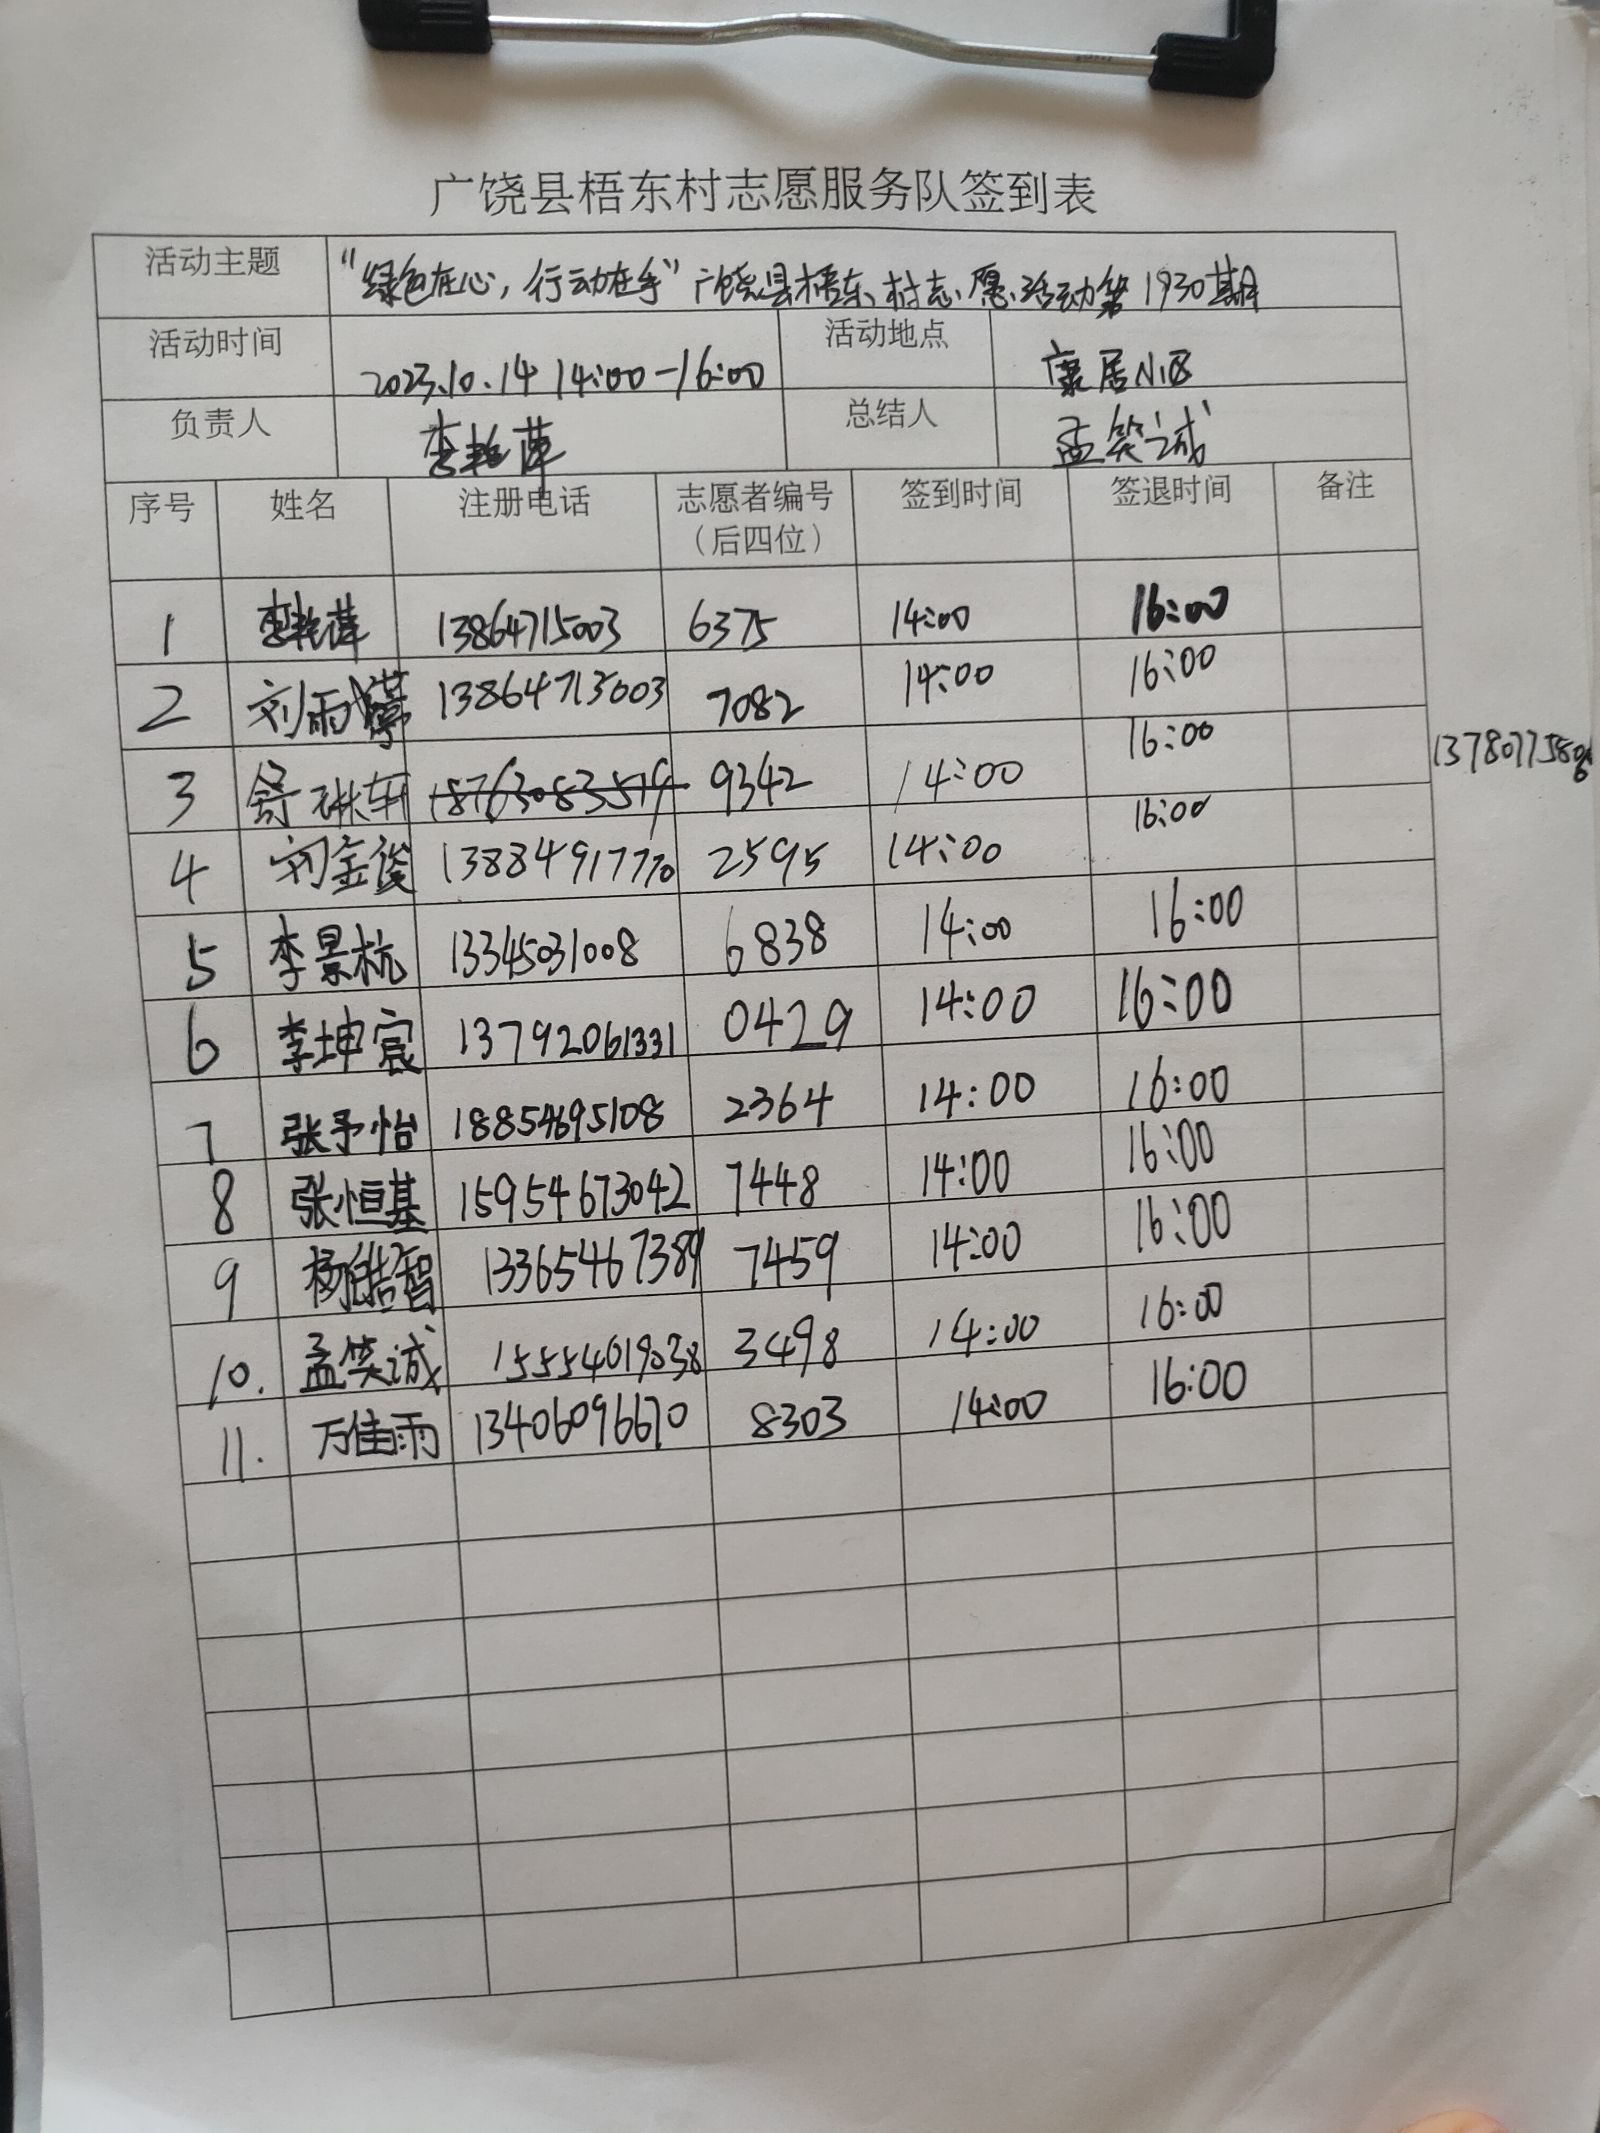 广饶县梧东村志愿服务队签到表
活动主题 "绿色在心,行动在手"广饶县梧东村志愿活动第1930期
活动时间 2023.10.14 14:00-16:00 活动地点 康居小区
负责人 李艳萍 总结人 孟笑诚
序号 姓名 注册电话 志愿者编号 签到时间 签退时间 备注
(后四位)
1 李艳萍 13864715003 6375 14:00 16:00
2 刘雨 13864715003 7082 14:00 16:00
3 舒琳轩 18763083519 9342 14:00 16:00 1378077580
4 刘金俊 13884917770 2595 14:00 16:00
5 李景杭 13345031008 6838 14:00 16:00
6 李坤宸 13792061331 0429 14:00 16:00
7 张予怡 18854695108 2364 14:00 16:00
8 张恒基 15954673042 7448 14:00 16:00
9 杨皓智 13365467389 7459 14:00 16:00
10. 孟笑诚 15554619038 3498 14:00 16:00
11. 万佳雨 13406096670 8303 14:00 16:00